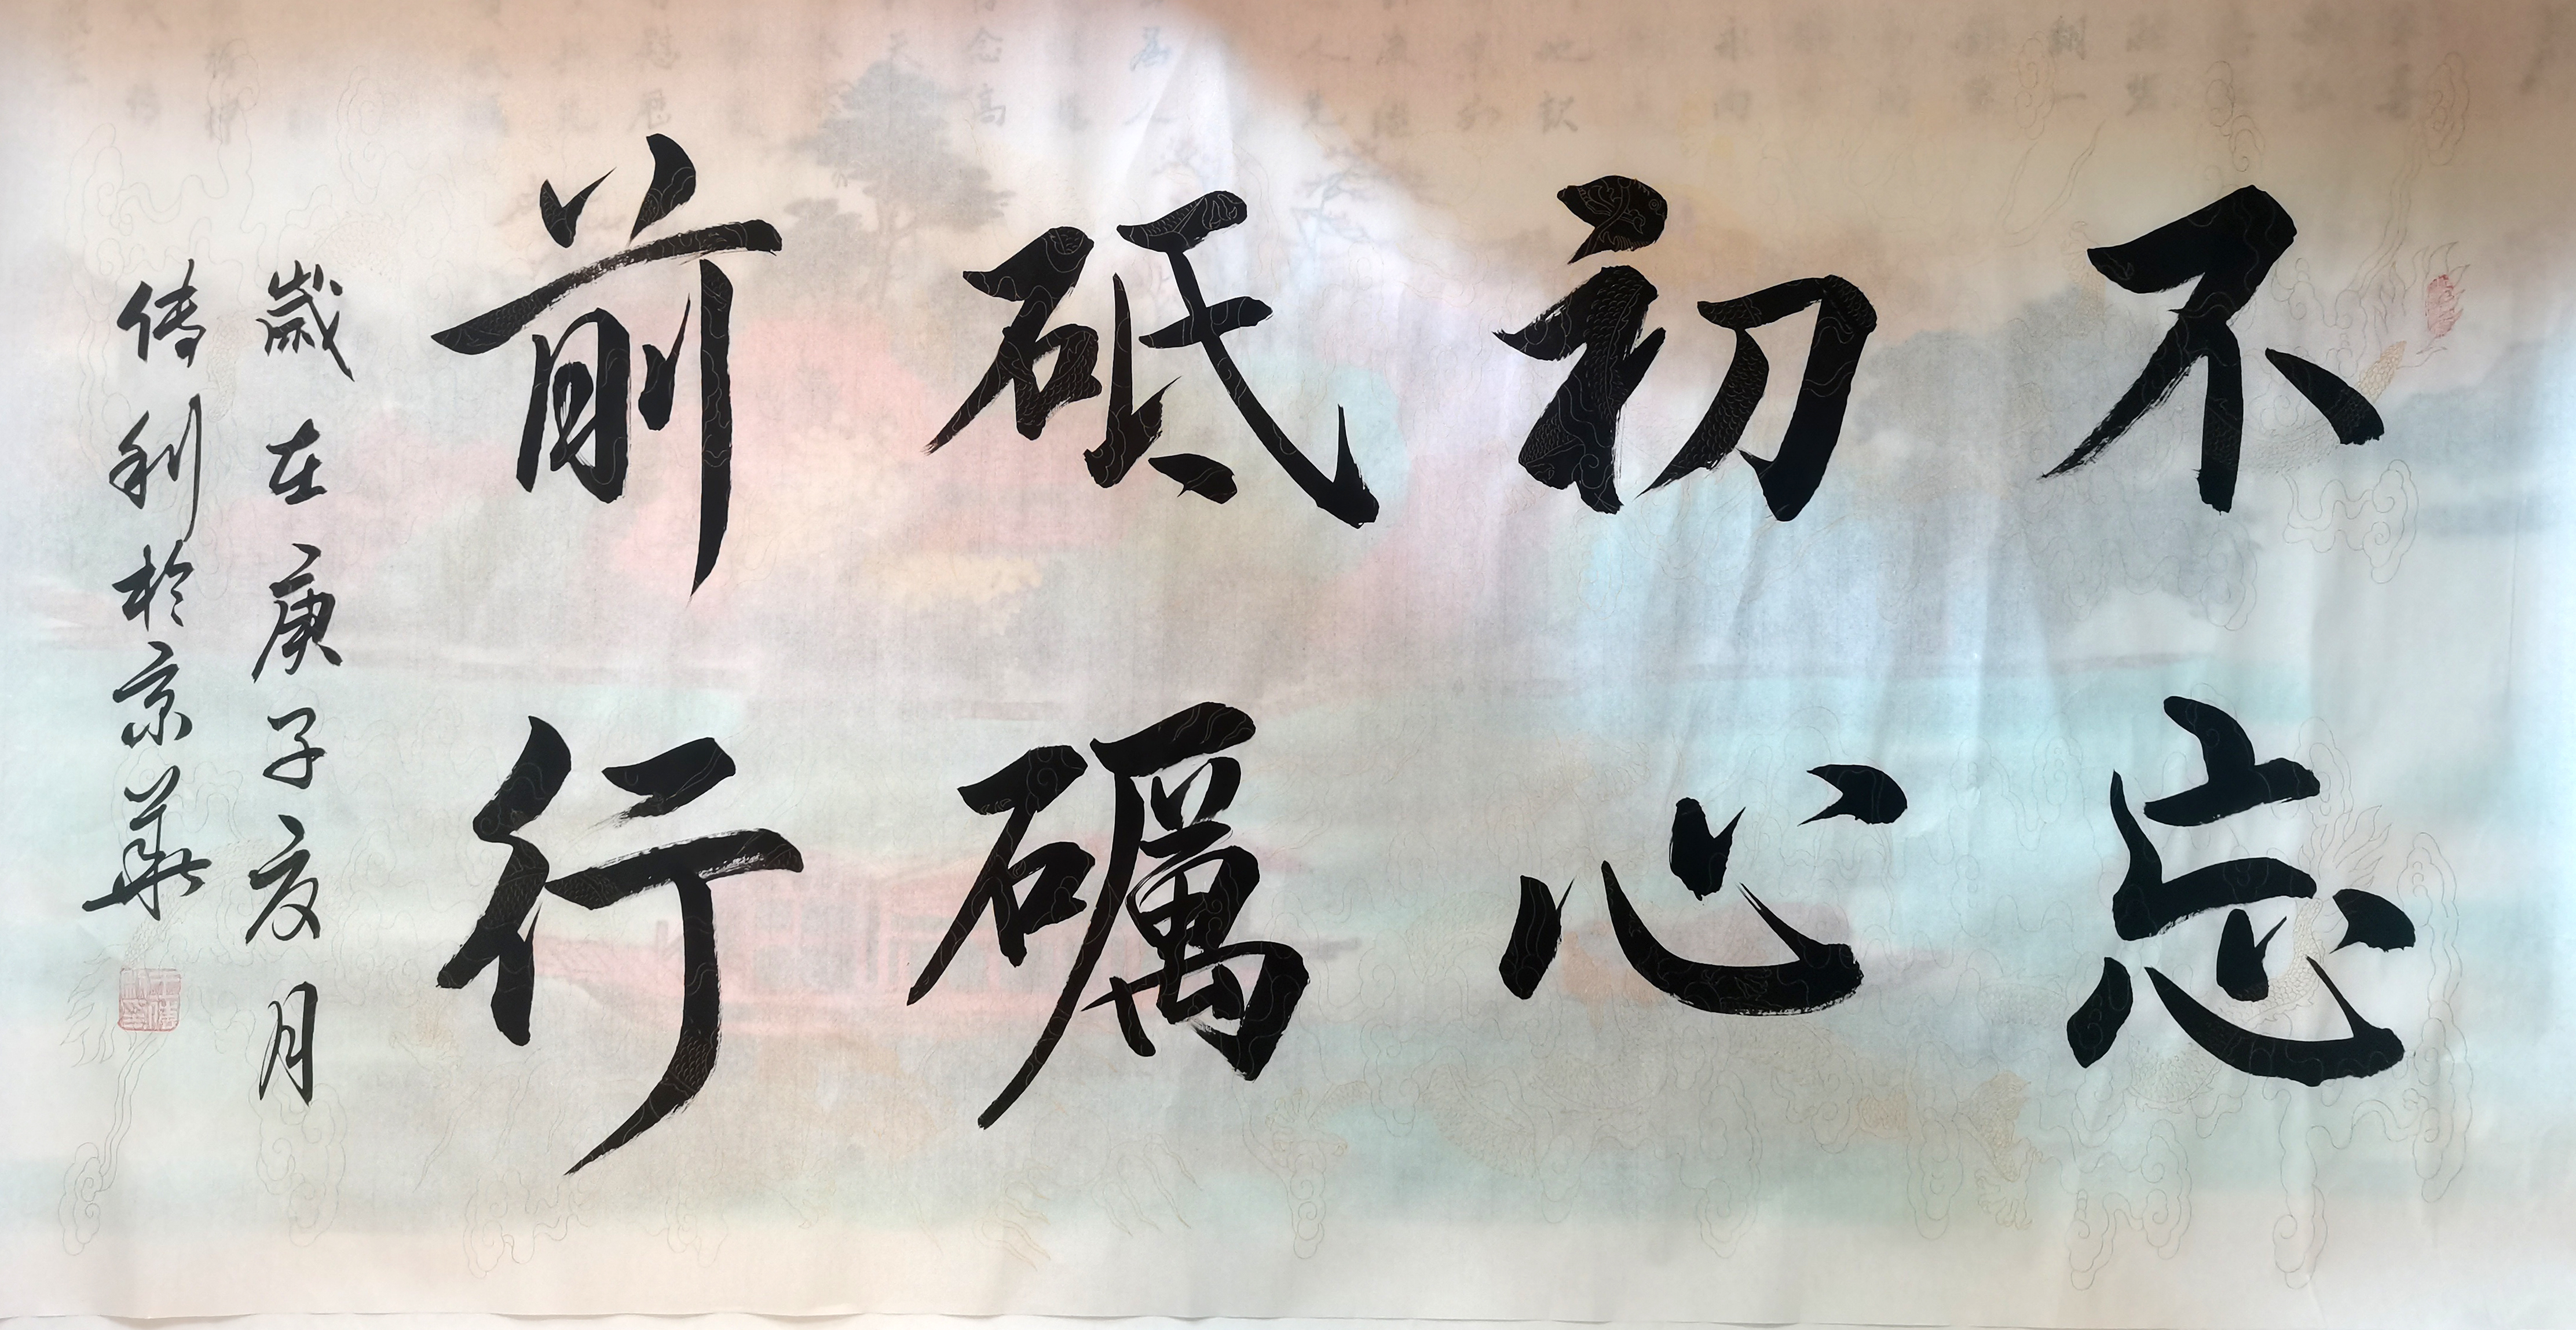 不忘
初心
砥礪
前行
歲在庚子亥月
傳利於京華